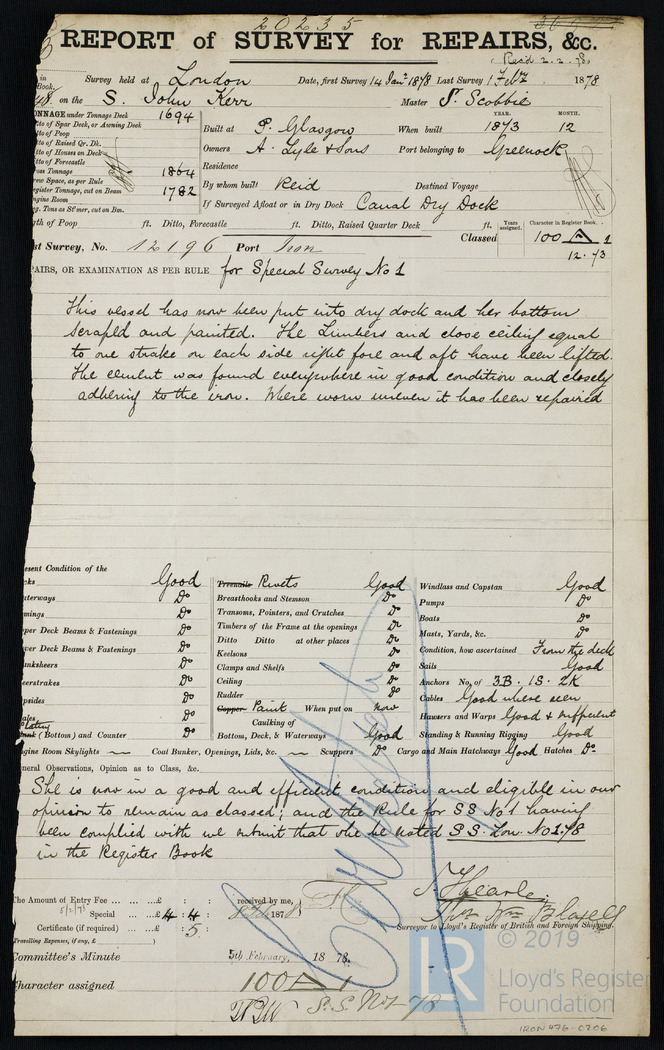 20235
REPORT of SURVEY for REPAIRS, &c.
Rec'd 2.2.78
Survey held at London Date, first Survey 14 Jany 1878 Last Survey 1 Feby 1878
on the S. John Kerr Master S. Scobbie
TONNAGE under Tonnage Deck 1694
Ditto of Spar Deck, or Awning Deck
Ditto of Poop
Ditto of Raised Qr. Dk.
Ditto of Houses on Deck
Ditto of Forecastle
Gross Tonnage 1864
Crew Space, as per Rule
Register Tonnage, cut on Beam 1782
Engine Room
Reg. Tons as St'mer, cut on Bm.
YEAR. MONTH.
Built at P. Glasgow When built 1873 12
Owners A. Lyle & Sons Port belonging to Greenock
Residence
By whom built Reid Destined Voyage
If Surveyed Afloat or in Dry Dock Canal Dry Dock
gth of Poop ft. Ditto, Forecastle ft. Ditto, Raised Quarter Deck ft.
Years assigned. Character in Register Book.
Classed 100 A 1
12.73
st Survey, No. 12196 Port Iron
PAIRS, OR EXAMINATION AS PER RULE for Special Survey No 1
This vessel has now been put into dry dock and her bottom
scraped and painted. The Limbers and close ceiling equal
to one strake on each side right fore and aft have been lifted.
The cement was found everywhere in good condition and closely
adhering to the iron. Where worn uneven it has been repaired
esent Condition of the
cks Good
aterways Do
mings Do
per Deck Beams & Fastenings Do
wer Deck Beams & Fastenings Do
anksheers Do
eerstrakes Do
psides Do
ales Do
Plating (Bottom) and Counter Do
Treenails Rivets Good
Breasthooks and Stemson Do
Transoms, Pointers, and Crutches Do
Timbers of the Frame at the openings Do
Ditto Ditto at other places Do
Keelsons Do
Clamps and Shelfs Do
Ceiling Do
Rudder Do
Copper Paint When put on now
Caulking of
Bottom, Deck, & Waterways Good
Windlass and Capstan Good
Pumps Do
Boats Do
Masts, Yards, &c. Do
Condition, how ascertained From the deck
Sails Good
Anchors No. of 3B. 1S. 2K
Cables Good where seen
Hawsers and Warps Good & sufficient
Standing & Running Rigging Good
gine Room Skylights — Coal Bunker, Openings, Lids, &c. — Scuppers Do Cargo and Main Hatchways Good Hatches Do
neral Observations, Opinion as to Class, &c.
She is now in a good and efficient condition and eligible in our
opinion to remain as classed; and the Rule for SS No 1 having
been complied with we submit that she be noted S.S. Lon. No 1.78
in the Register Book
The Amount of Entry Fee ... ... £ : : received by me,
5/2/78
Special ... ... £ 4 : 4 : 187
Certificate (if required) ... £ : 5 :
(Travelling Expenses, if any, £ )
Surveyor to Lloyd's Register of British and Foreign Shipping.
Committee's Minute 5th February, 1878.
Character assigned 100 A 1
S.S. No 1 78
© 2019
LR
Lloyd's Register
Foundation
IRON 476-0206